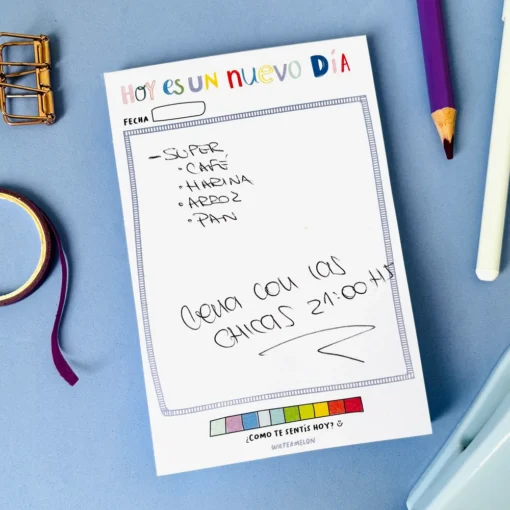 HOY ES UN NUEVO DÍA
FECHA
- SUPER
• CAFÉ
• HARINA
• ARROZ
• PAN
Cena con las
chicas 21:00 HS
¿COMO TE SENTÍS HOY?
WATERMELON